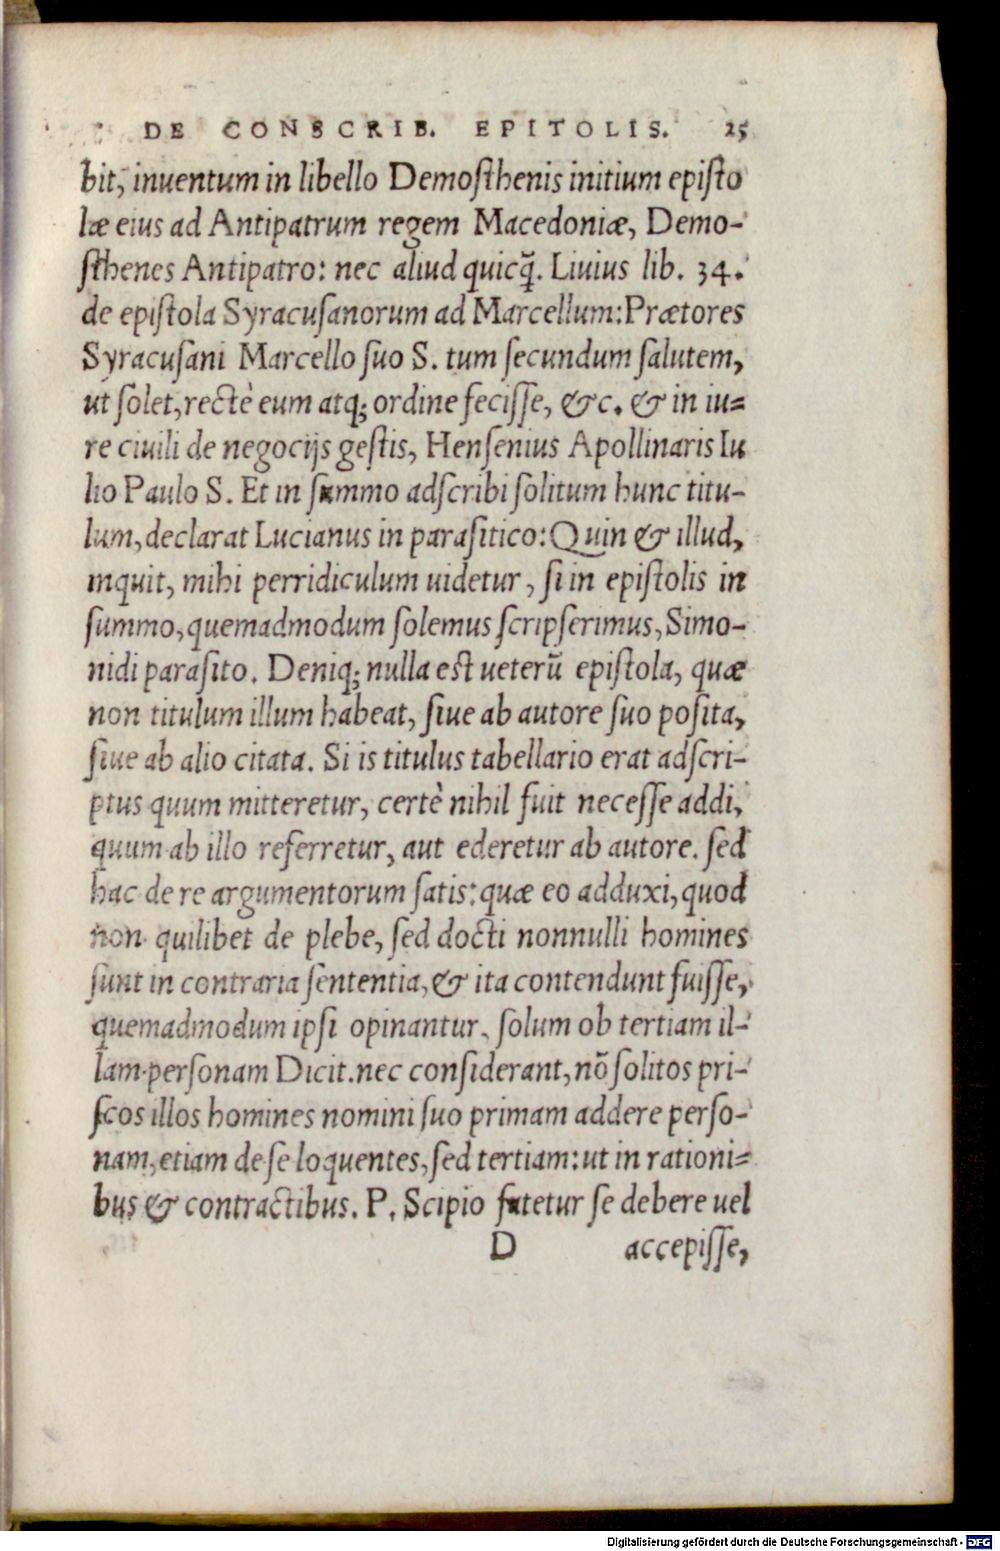 DE CONSCRIB. EPITOLIS. 25
bit, inuentum in libello Demoſthenis initium epiſto
læ eius ad Antipatrum regem Macedoniæ, Demo-
ſthenes Antipatro: nec aliud quicq̃. Liuius lib. 34.
de epiſtola Syracuſanorum ad Marcellum: Prætores
Syracuſani Marcello ſuo S. tum ſecundum ſalutem,
ut ſolet, rectè eum atq; ordine feciſſe, &c. & in iu=
re ciuili de negocijs geſtis, Henſenius Apollinaris Iu
lio Paulo S. Et in ſummo adſcribi ſolitum hunc titu-
lum, declarat Lucianus in paraſitico: Quin & illud,
inquit, mihi perridiculum uidetur, ſi in epiſtolis in
ſummo, quemadmodum ſolemus ſcripſerimus, Simo-
nidi paraſito. Deniq; nulla eſt ueterũ epiſtola, quæ
non titulum illum habeat, ſiue ab autore ſuo poſita,
ſiue ab alio citata. Si is titulus tabellario erat adſcri-
ptus quum mitteretur, certè nihil fuit neceſſe addi,
quum ab illo referretur, aut ederetur ab autore. ſed
hac de re argumentorum ſatis: quæ eo adduxi, quod
non quilibet de plebe, ſed docti nonnulli homines
ſunt in contraria ſententia, & ita contendunt fuiſſe,
quemadmodum ipſi opinantur, ſolum ob tertiam il-
lam perſonam Dicit. nec conſiderant, nõ ſolitos pri-
ſcos illos homines nomini ſuo primam addere perſo-
nam, etiam de ſe loquentes, ſed tertiam: ut in rationi=
bus & contractibus. P. Scipio fatetur ſe debere uel
D accepiſſe,
Digitalisierung gefördert durch die Deutsche Forschungsgemeinschaft - DFG